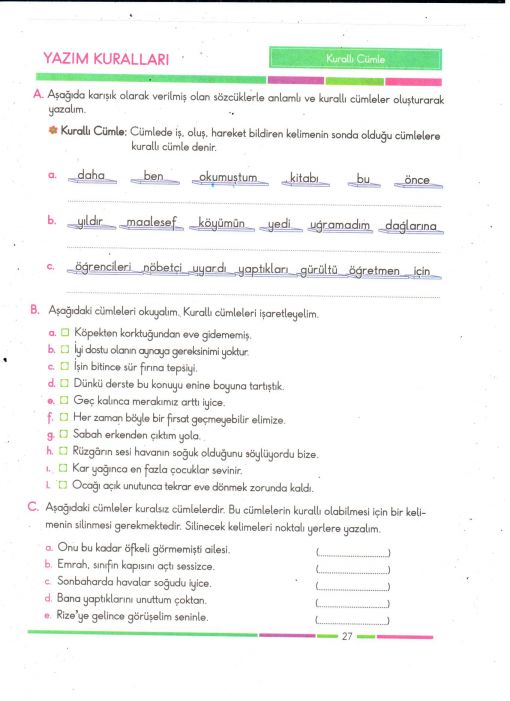 YAZIM KURALLARI
Kurallı Cümle
A. Aşağıda karışık olarak verilmiş olan sözcüklerle anlamlı ve kurallı cümleler oluşturarak
yazalım.
Kurallı Cümle: Cümlede iş, oluş, hareket bildiren kelimenin sonda olduğu cümlelere
kurallı cümle denir.
a. daha ben okumuştum kitabı bu önce
b. yıldır maalesef köyümün yedi uğramadım dağlarına
c. öğrencileri nöbetçi uyardı yaptıkları gürültü öğretmen için
B. Aşağıdaki cümleleri okuyalım. Kurallı cümleleri işaretleyelim.
a. Köpekten korktuğundan eve gidememiş.
b. İyi dostu olanın aynaya gereksinimi yoktur.
c. İşin bitince sür fırına tepsiyi.
d. Dünkü derste bu konuyu enine boyuna tartıştık.
e. Geç kalınca merakımız arttı iyice.
f. Her zaman böyle bir fırsat geçmeyebilir elimize.
g. Sabah erkenden çıktım yola.
h. Rüzgârın sesi havanın soğuk olduğunu söylüyordu bize.
ı. Kar yağınca en fazla çocuklar sevinir.
i. Ocağı açık unutunca tekrar eve dönmek zorunda kaldı.
C. Aşağıdaki cümleler kuralsız cümlelerdir. Bu cümlelerin kurallı olabilmesi için bir keli-
menin silinmesi gerekmektedir. Silinecek kelimeleri noktalı yerlere yazalım.
a. Onu bu kadar öfkeli görmemişti ailesi. (....................)
b. Emrah, sınıfın kapısını açtı sessizce. (....................)
c. Sonbaharda havalar soğudu iyice. (....................)
d. Bana yaptıklarını unuttum çoktan. (....................)
e. Rize'ye gelince görüşelim seninle. (....................)
27